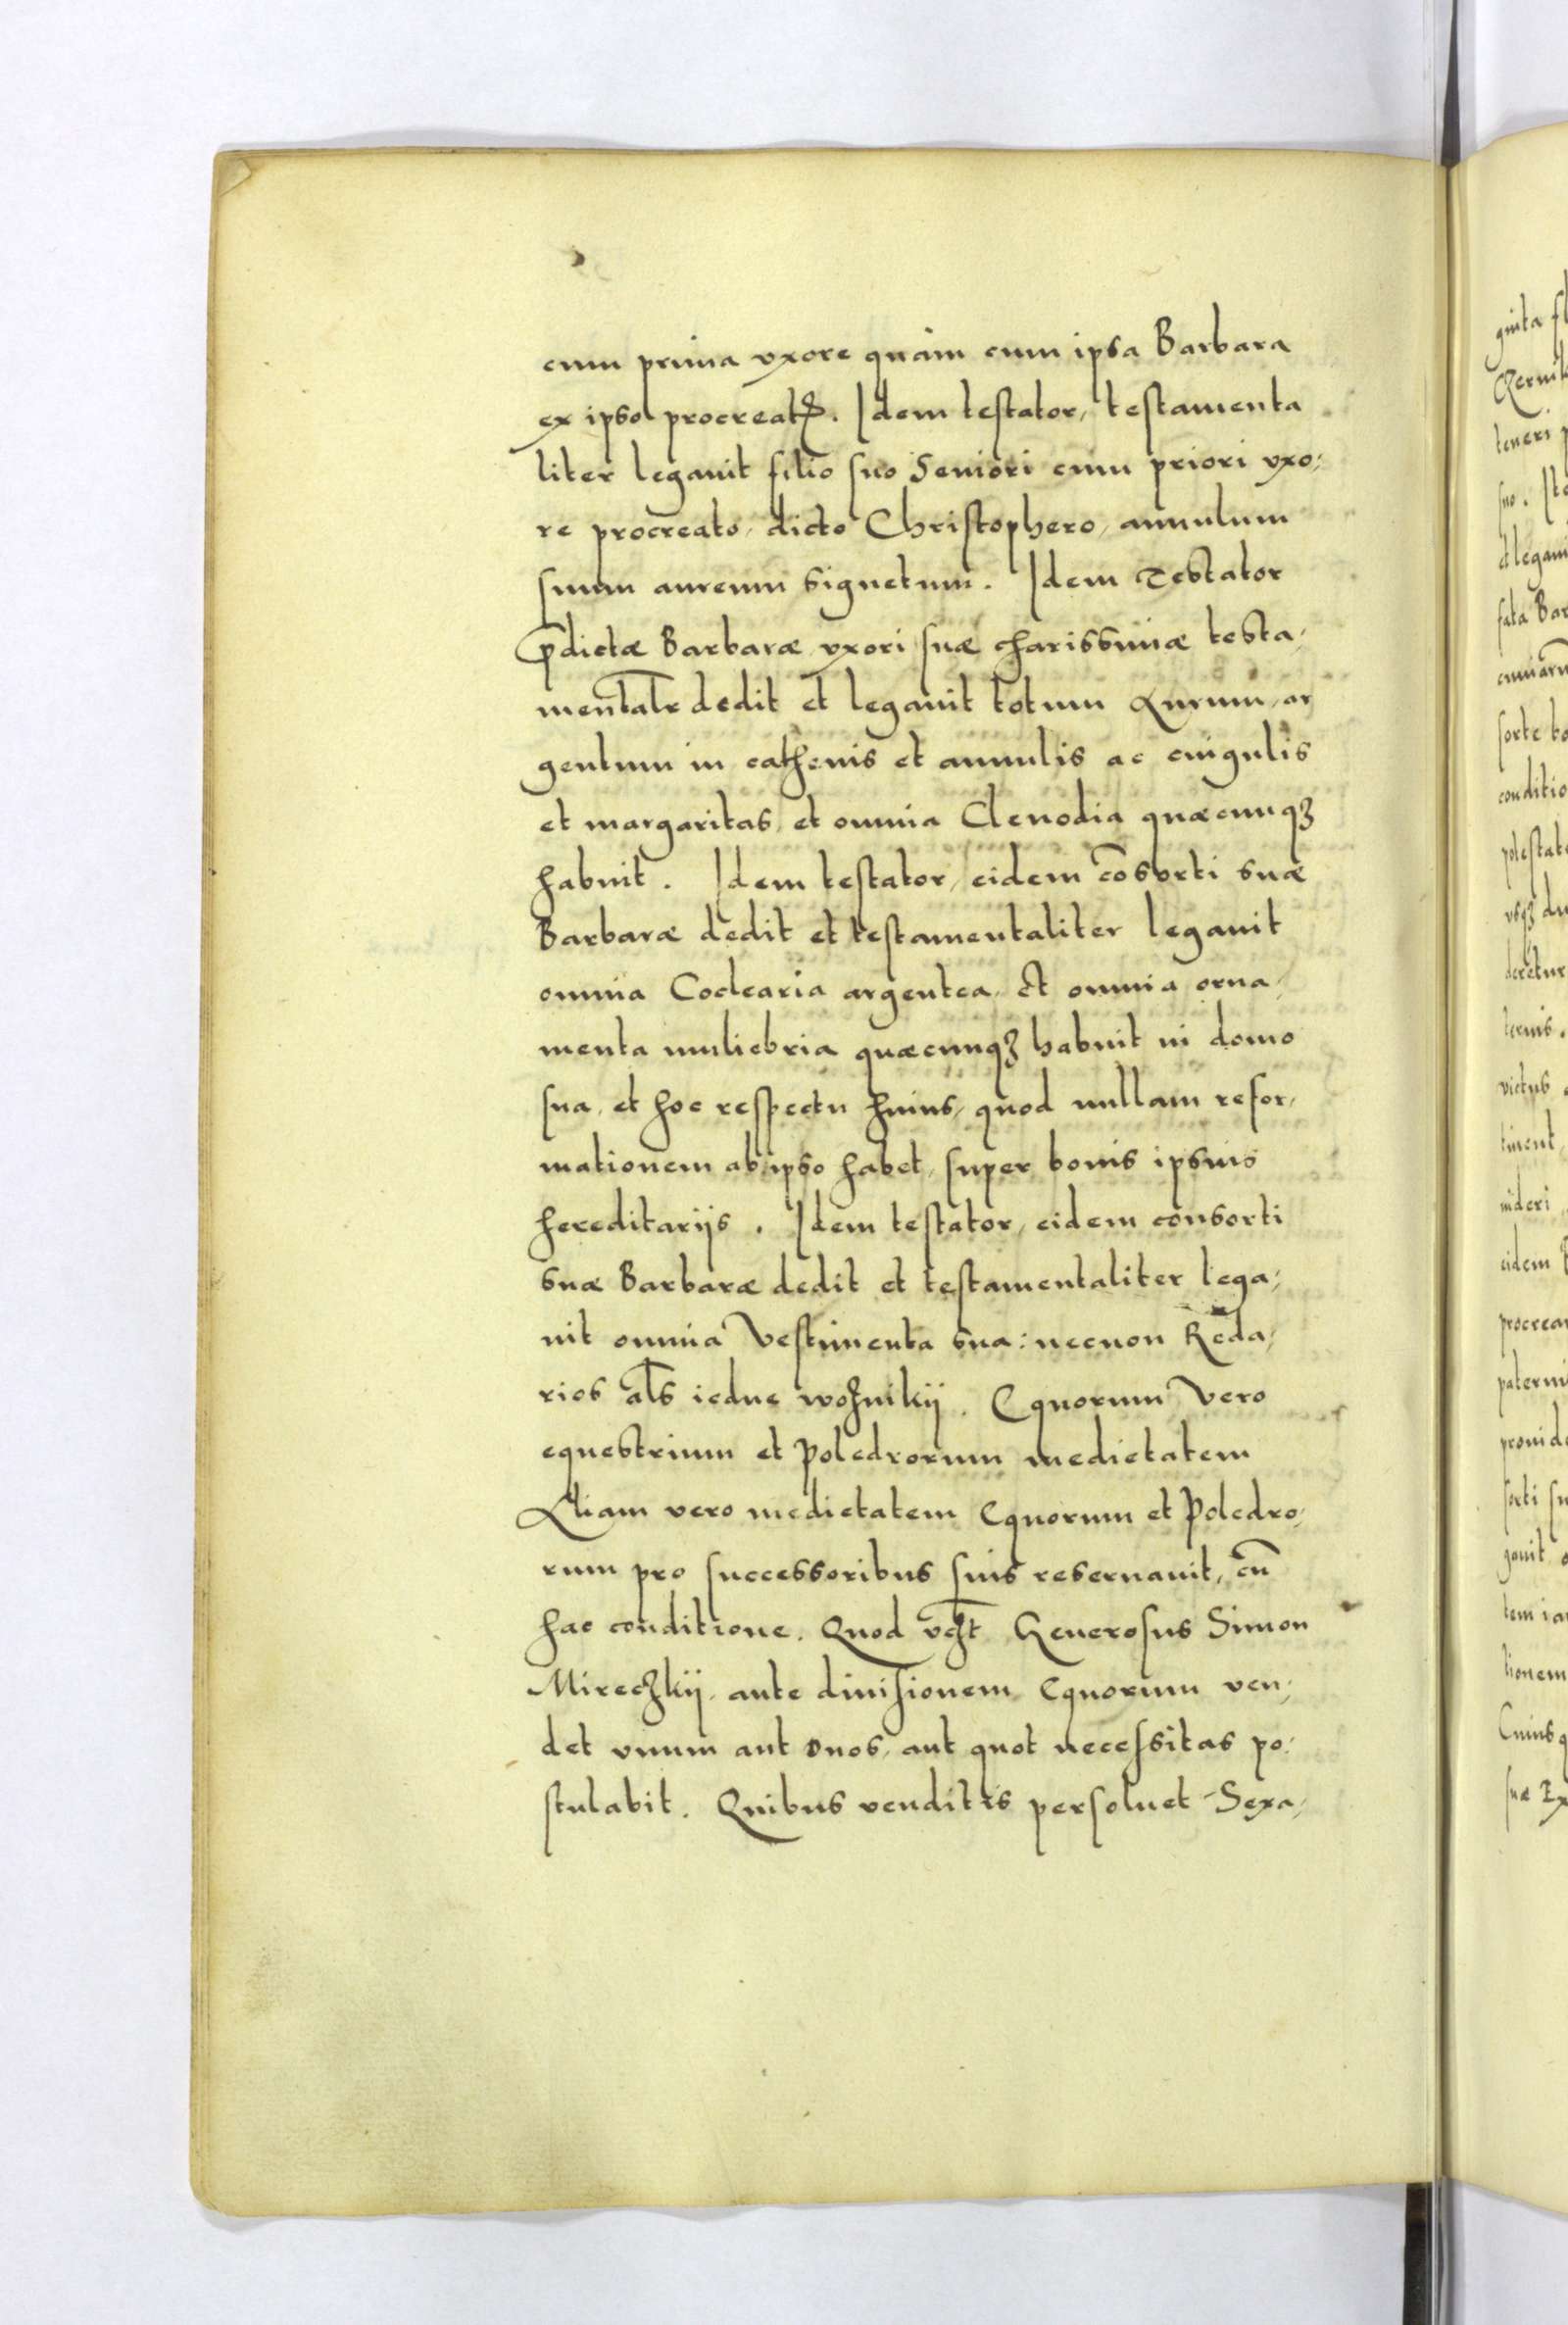 cum prima vxore quàm cum ipsa Barbara
ex ipso procreatꝭ. Idem testator, testamenta
liter legauit filio suo Seniori cum priori vxo,
re procreato, dicto Christophero, annulum
suum aureum signetum. Idem Testator
p̄dictæ Barbaræ vxori suæ charissimæ testa,
mental̄r dedit et legauit totum Aurum, ar
gentum in cathenis et annulis ac cingulis
et margaritas, et omnia Clenodia quæcunqꝫ
habuit. Idem testator, eidem cōsorti suæ
Barbaræ dedit et testamentaliter legauit
omnia Coclearia argentea, et omnia orna,
menta muliebria quæcunqꝫ habuit in domo
sua, et hoc respectu huius, quod nullam refor,
mationem ab ipso habet, super bonis ipsius
hereditarijs. Idem testator, eidem consorti
suæ Barbaræ dedit et testamentaliter lega,
uit omnia Vestimenta sua: necnon Reda,
rios al̄s iedne woznikij. Equorum Vero
equestrium et Poledrorum medietatem
Aliam vero medietatem Equorum et Poledro,
rum pro successoribus suis reseruauit, cū
hac conditione. Quod Generosus Simon
Mireczkij, ante diuisionem Equorum ven,
det vnum aut duos, aut quot necessitas po,
stulabit. Quibus venditis persoluet Sexa,
guita
teneri
suo.
et legaui
fata Bar
conditio
deretur
victus
eidem
procrea
tionem
Cuius
suæ